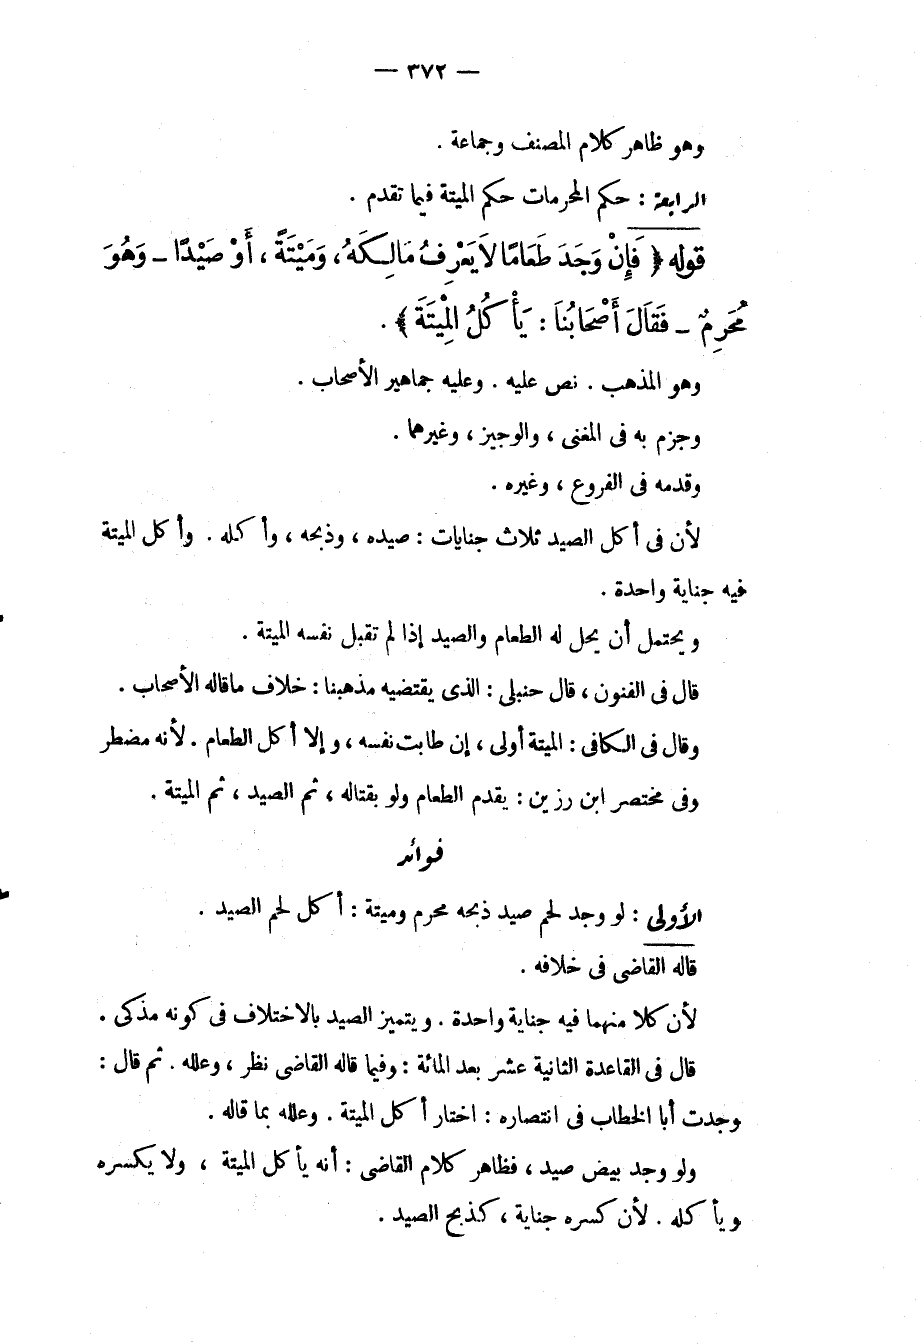 — ٣٧٢ —
وهو ظاهر كلام المصنف وجماعة .
الرابعة : حكم المحرمات حكم الميتة فيما تقدم .
قوله ﴿ فَإِنْ وَجَدَ طَعَامًا لاَ يَعْرِفُ مَالِكَهُ، وَمَيْتَةً، أَوْ صَيْدًا – وَهُوَ
مُحَرِمٌ – فَقَالَ أَصْحَابُنَا : يَأْكُلُ الْمِيتَةَ ﴾ .
وهو المذهب . نص عليه . وعليه جماهير الأصحاب .
وجزم به فى المغنى ، والوجيز ، وغيرهما .
وقدمه فى الفروع ، وغيره .
لأن فى أكل الصيد ثلاث جنايات : صيده ، وذبحه ، وأكله . وأكل الميتة
فيه جناية واحدة .
ويحتمل أن يحل له الطعام والصيد إذا لم تقبل نفسه الميتة .
قال فى الفنون ، قال حنبلى : الذى يقتضيه مذهبنا : خلاف ماقاله الأصحاب .
وقال فى الكافى : الميتة أولى ، إن طابت نفسه ، وإلا أكل الطعام . لأنه مضطر
وفى مختصر ابن رزين : يقدم الطعام ولو بقتاله ، ثم الصيد ، ثم الميتة .
فوائد
الأولى : لو وجد لحم صيد ذبحه محرم وميتة : أكل لحم الصيد .
قاله القاضى فى خلافه .
لأن كلا منهما فيه جناية واحدة . ويتميز الصيد بالاختلاف فى كونه مذكى .
قال فى القاعدة الثانية عشر بعد المائة : وفيما قاله القاضى نظر ، وعلله . ثم قال :
وجدت أبا الخطاب فى انتصاره : اختار أكل الميتة . وعلله بما قاله .
ولو وجد بيض صيد ، فظاهر كلام القاضى : أنه يأكل الميتة ، ولا يكسره
ويأكله . لأن كسره جناية ، كذبح الصيد .